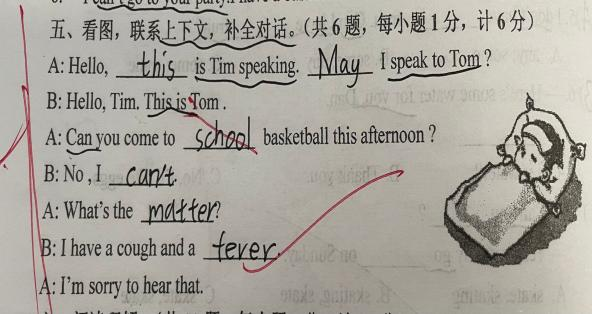 五、看图，联系上下文，补全对话。（共6题，每小题1分，计6分）
A: Hello, this is Tim speaking. May I speak to Tom ?
B: Hello, Tim. This is Tom .
A: Can you come to school basketball this afternoon ?
B: No , I can't.
A: What's the matter?
B: I have a cough and a fever.
A: I'm sorry to hear that.